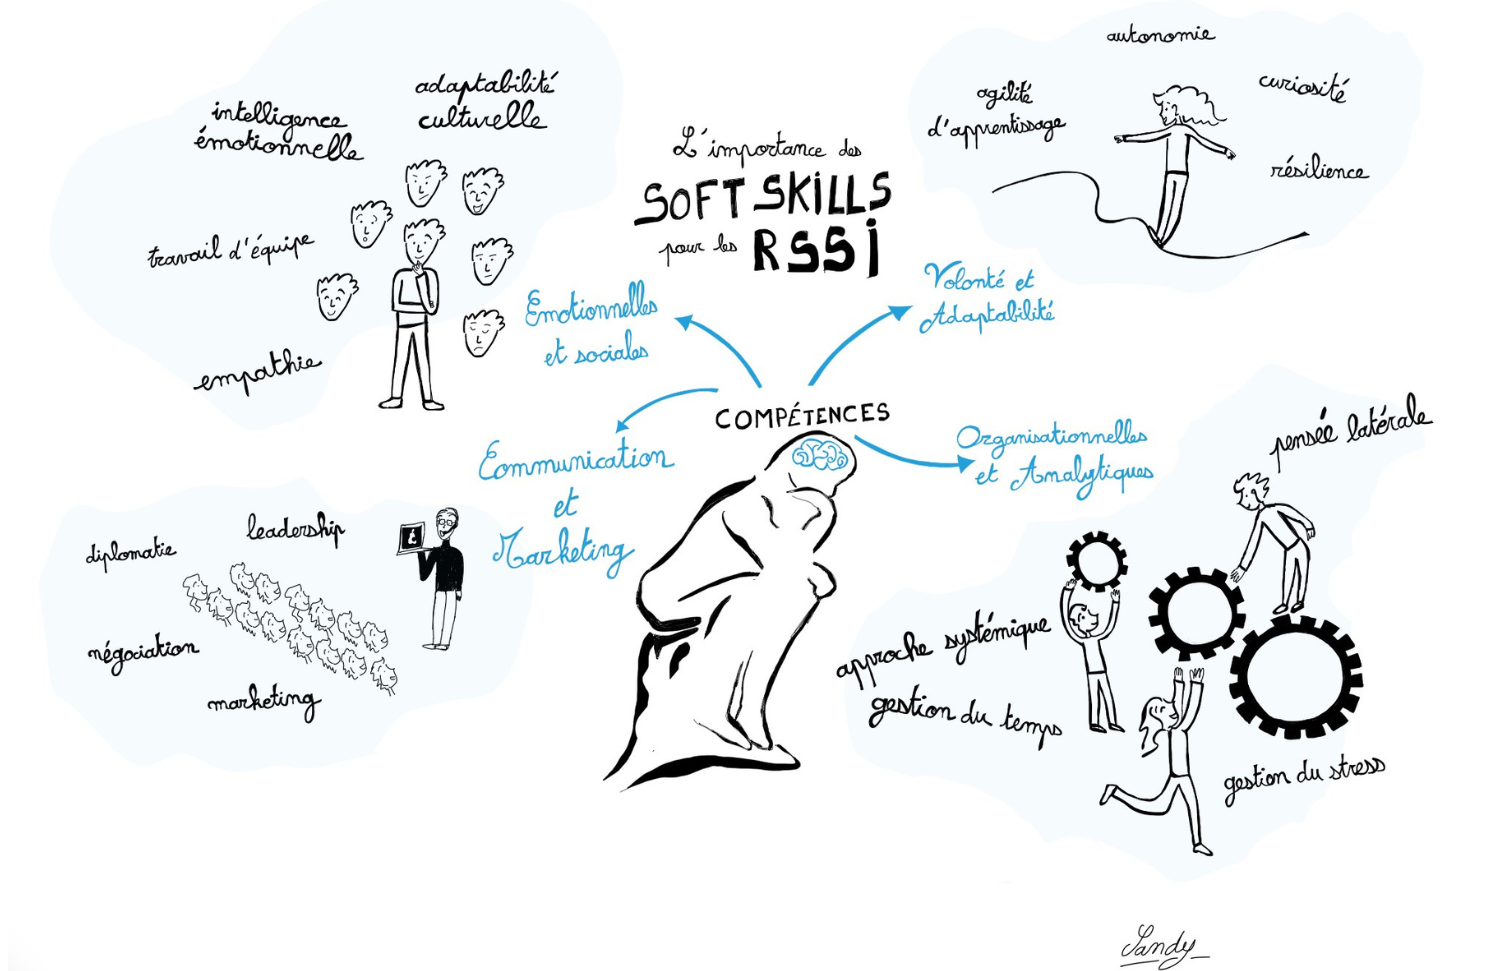 L'importance des
SOFT SKILLS
pour les RSSI
COMPÉTENCES
Émotionnelles
et sociales
intelligence
émotionnelle
adaptabilité
culturelle
travail d'équipe
empathie
Volonté et
Adaptabilité
autonomie
agilité
d'apprentissage
curiosité
résilience
Communication
et
Marketing
leadership
diplomatie
négociation
marketing
Organisationnelles
et Analytiques
pensée latérale
approche systémique
gestion du temps
gestion du stress
Sandy